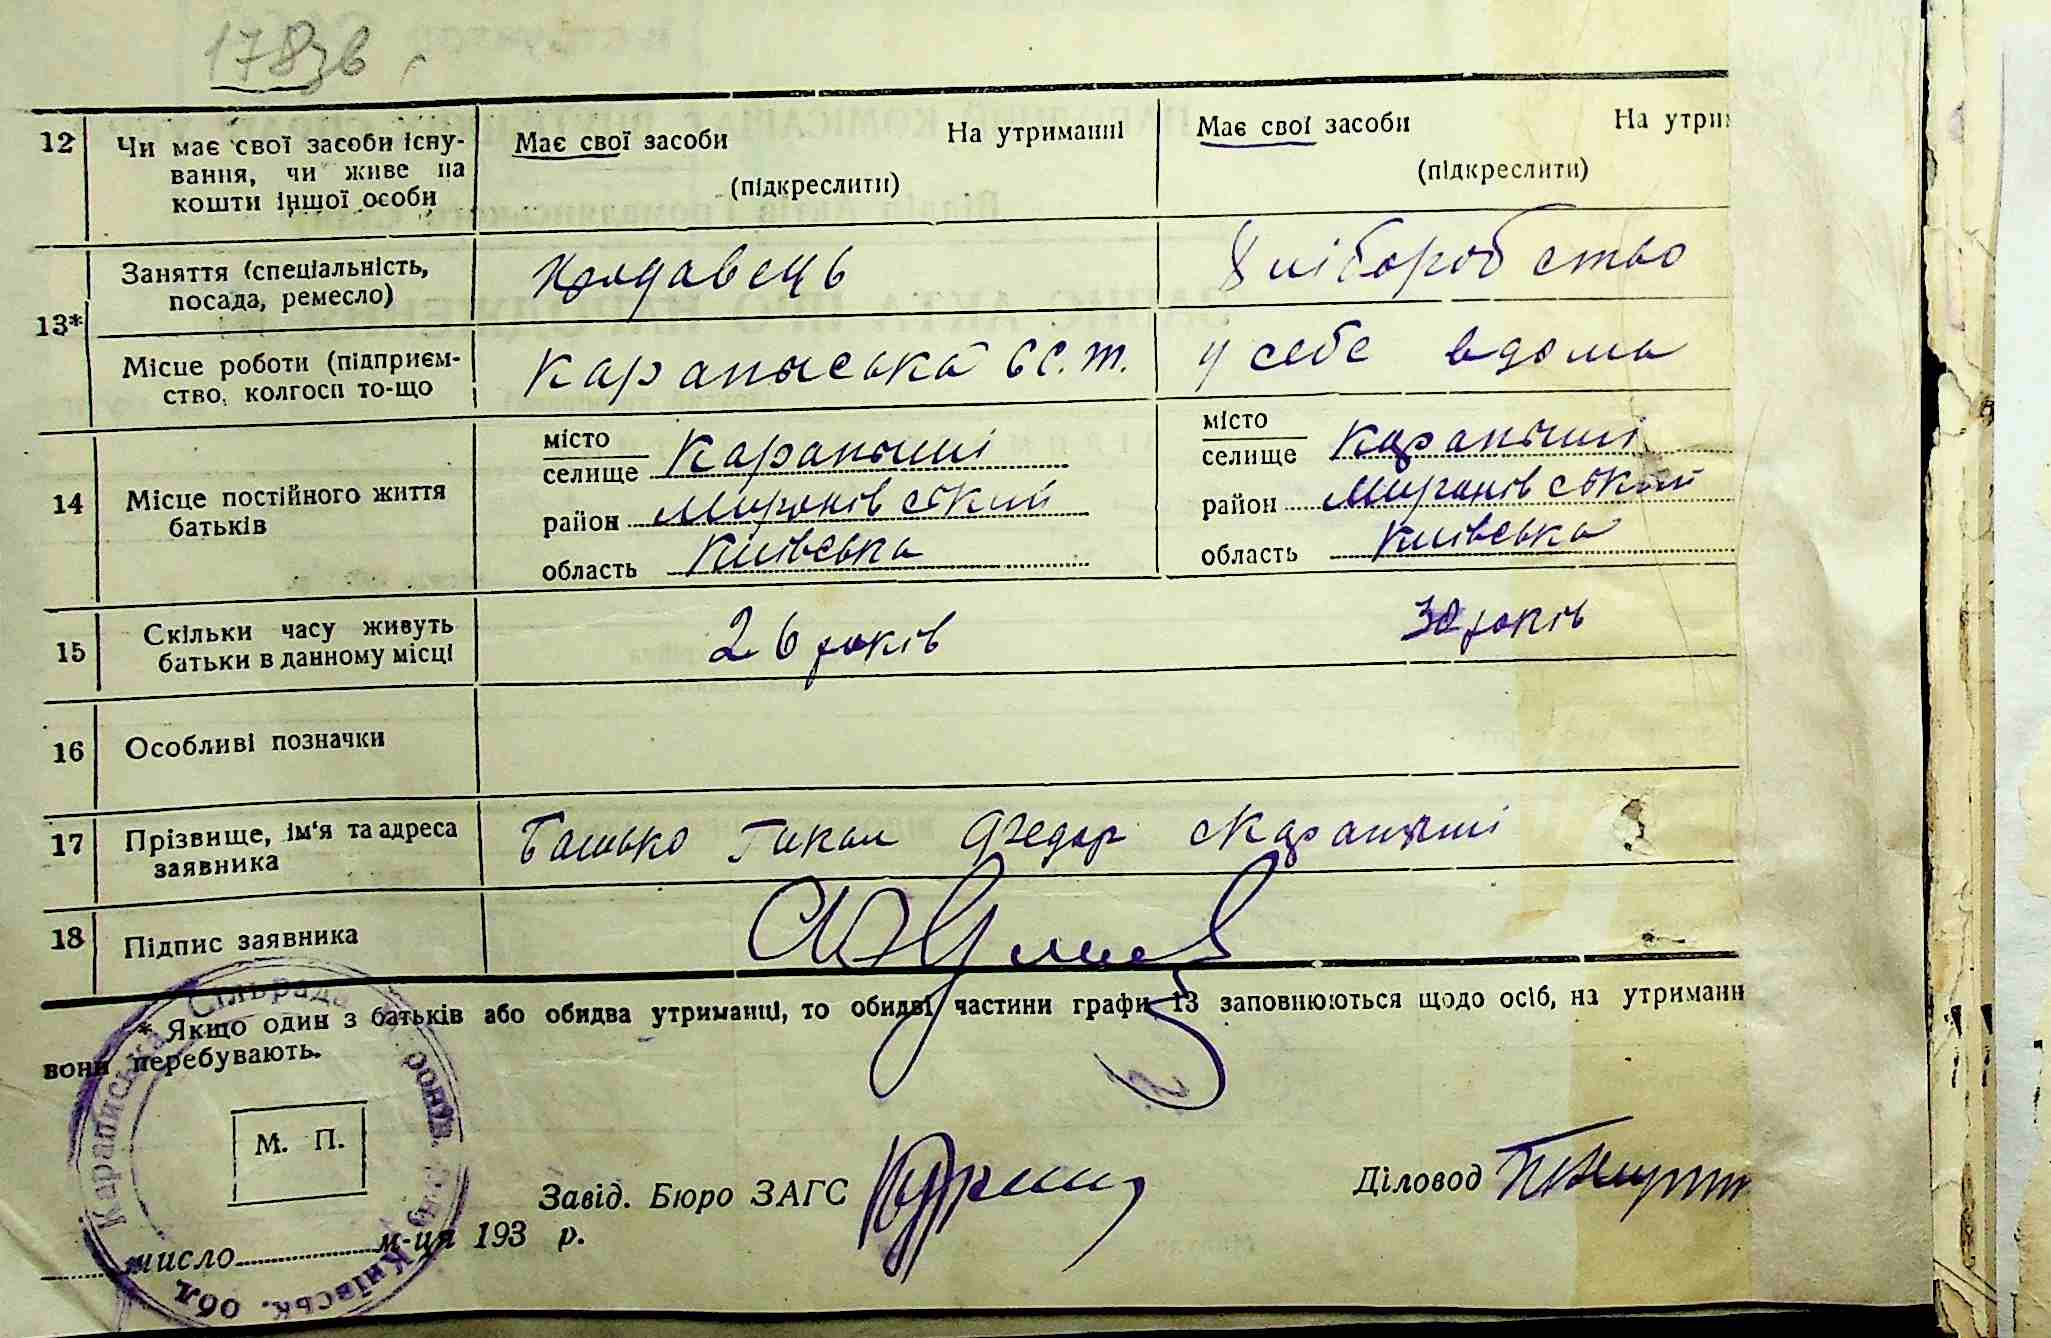 178зв
12 Чи має свої засоби існу-
вання, чи живе на
кошти іншої особи
Має свої засоби На утриманні
(підкреслити)
Має свої засоби На утрим
(підкреслити)
13*
Заняття (спеціальність,
посада, ремесло)
Продавець
Хліборобство
Місце роботи (підприєм-
ство, колгосп то-що
Карапиське ССТ.
у себе вдома
14 Місце постійного життя
батьків
місто
селище Карапиші
район Миронівський
область Київська
місто
селище Карапиші
район Миронівський
область Київська
15 Скільки часу живуть
батьки в данному місці
26 років
30 років
16 Особливі позначки
17 Прізвище, ім'я та адреса
заявника
Батько Федор с Карапиші
18 Підпис заявника
* Якщо один з батьків або обидва утриманці, то обидві частини графи 13 заповнюються щодо осіб, на утриманн
вони перебувають.
М. П.
Завід. Бюро ЗАГС
Діловод
число м-ця 193 р.
Караписька Сільрада Київськ. обл.